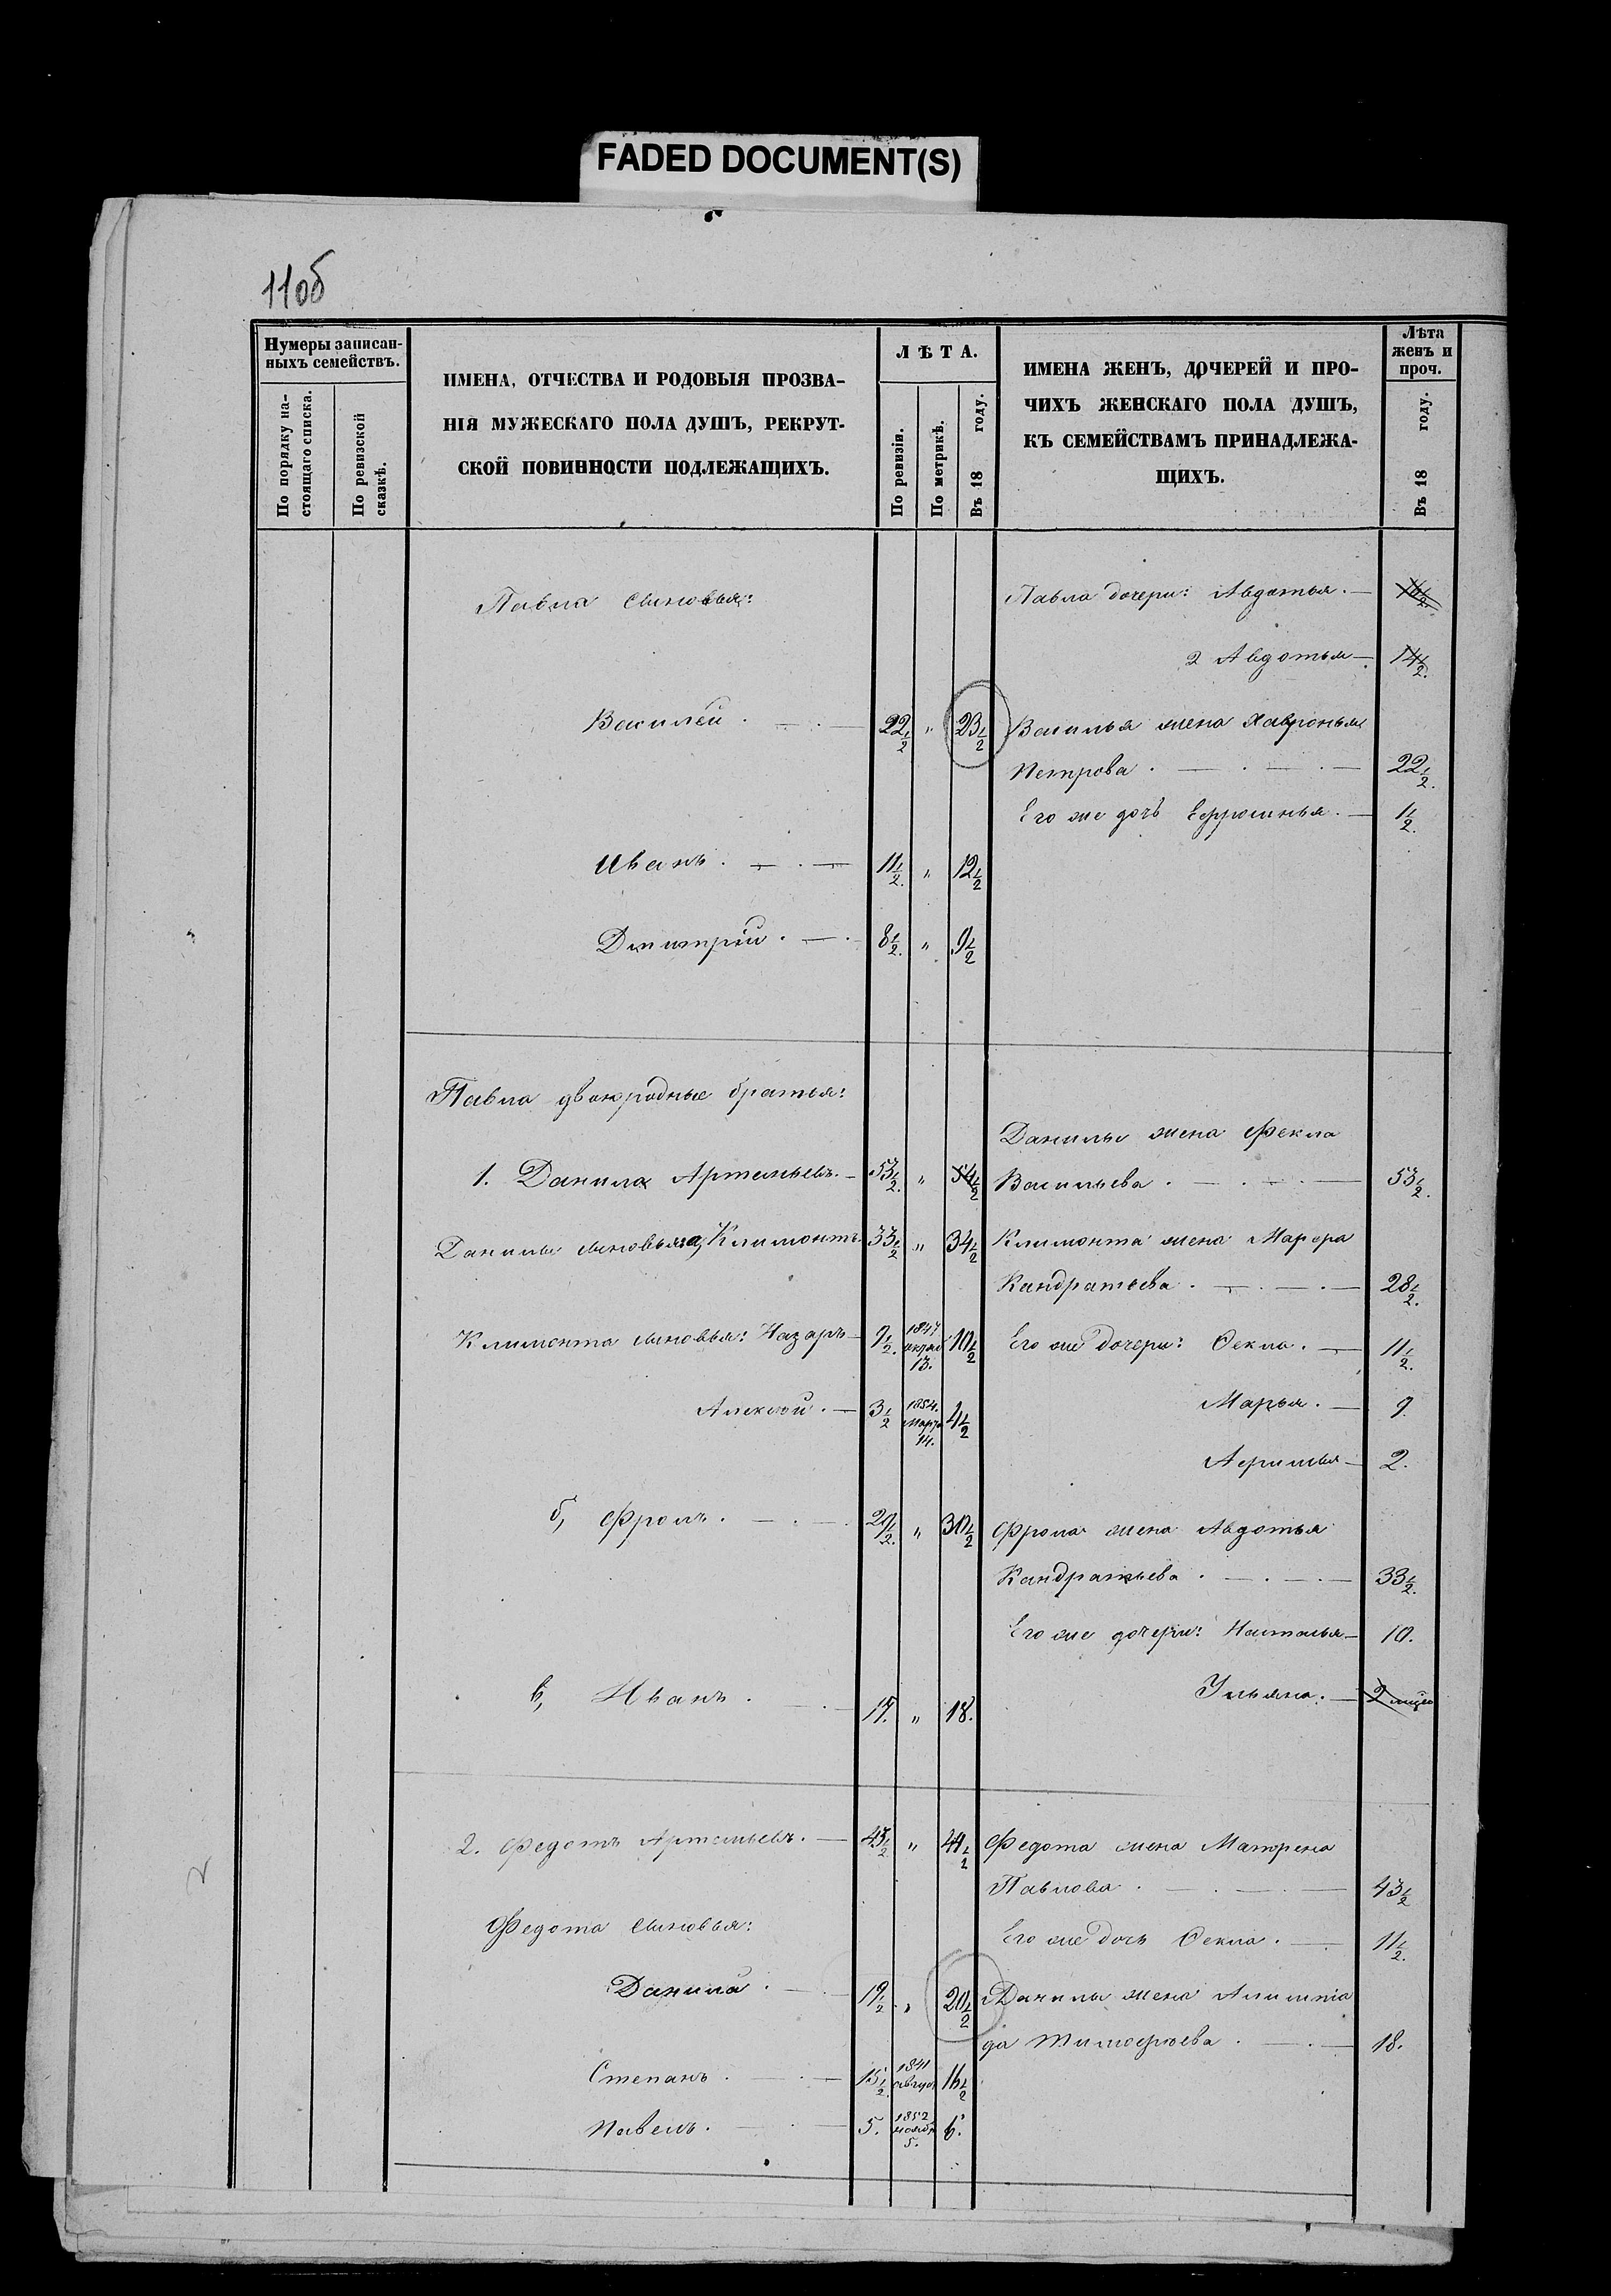 FADED DOCUMENT(S)
110б
Нумеры записан-
ныхъ семействъ.
По порядку на-
стоящаго списка.
По ревизской
сказкѣ.
ИМЕНА, ОТЧЕСТВА И РОДОВЫЯ ПРОЗВА-
НІЯ МУЖЕСКАГО ПОЛА ДУШЪ, РЕКРУТ-
СКОЙ ПОВИННОСТИ ПОДЛЕЖАЩИХЪ.
ЛѢТА.
По ревизіи.
По метрикѣ.
Въ 18 году.
ИМЕНА ЖЕНЪ, ДОЧЕРЕЙ И ПРО-
ЧИХЪ ЖЕНСКАГО ПОЛА ДУШЪ,
КЪ СЕМЕЙСТВАМЪ ПРИНАДЛЕЖА-
ЩИХЪ.
Лѣта
женъ и
проч.
Въ 18 году.
Павла сыновья: Павла дочери: Авдотья. —
2 Авдотья — 14 1/2.
Василій . — . — 22 1/2 " 23 1/2 Василья жена Хавронья
Петрова . — . — . — 22 1/2.
Его же дочь Ефросинья. — 1 1/2.
Иванъ . — . — 11 1/2. " 12 1/2
Дмитрій . — . 8 1/2. " 9 1/2
Павла двоюродные братья:
Данилы жена Фекла
1. Данила Артемьевъ. — 53 1/2. " 54 1/2 Васильева . — . — . — 53 1/2.
Данилы сыновья: а, Климонтъ. 33 1/2 " 34 1/2 Климонта жена Марфа
Кандратьева . — . — . — 28 1/2.
Климонта сыновья: Назаръ — 9 1/2. 1847 октяб 13. 10 1/2 Его же дочери: Ѳекла . — 11 1/2.
Алексѣй . — 3 1/2 1854. Март 14. 4 1/2 Марья. — 9.
— 2.
б, Фролъ . — . — . 29 1/2. " 30 1/2 Фрола жена Авдотья
Кандратьева . — . — . — 33 1/2.
Его же дочери: Наталья — 10.
в, Иванъ . — . — 17. " 18. Ульяна. — 2
2. Федотъ Артемьевъ. — 43 1/2 " 44 1/2 Федота жена Матрена
Павлова . — . — . — 43 1/2
Федота сыновья: Его же дочь Ѳекла . — . 11 1/2.
Данила . — 19 1/2 " 20 1/2 Данилы жена Алимпіа
да Тимофѣева . — . — 18.
Степанъ . — . — 15 1/2. 1841 август 16 1/2
Павелъ . — . — 5. 1852 ноябр 5. 6.